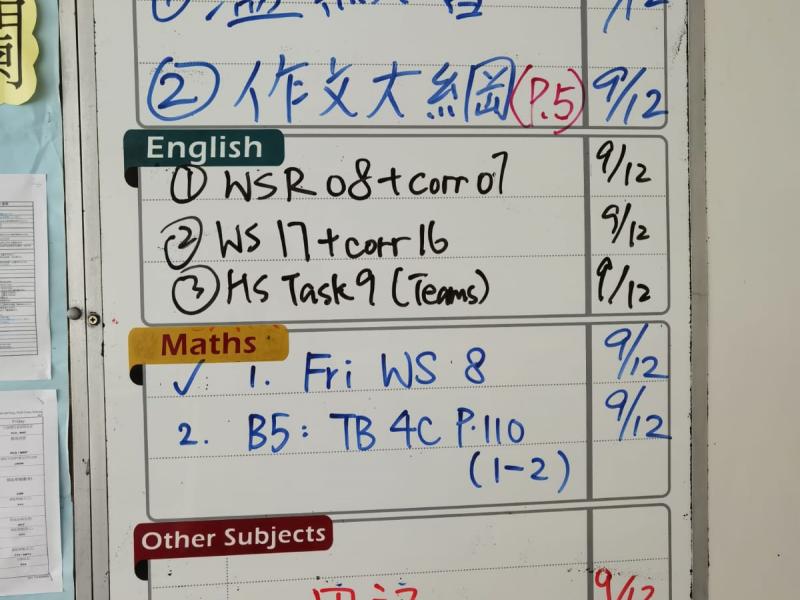 ② 作文大綱(P.5) 9/12
English
① WS R 08 + corr 07 9/12
② WS 17 + corr 16 9/12
③ HS Task 9 (Teams) 9/12
Maths
✓ 1. Fri WS 8 9/12
2. B5: TB 4C P.110 9/12
(1-2)
Other Subjects
9/12